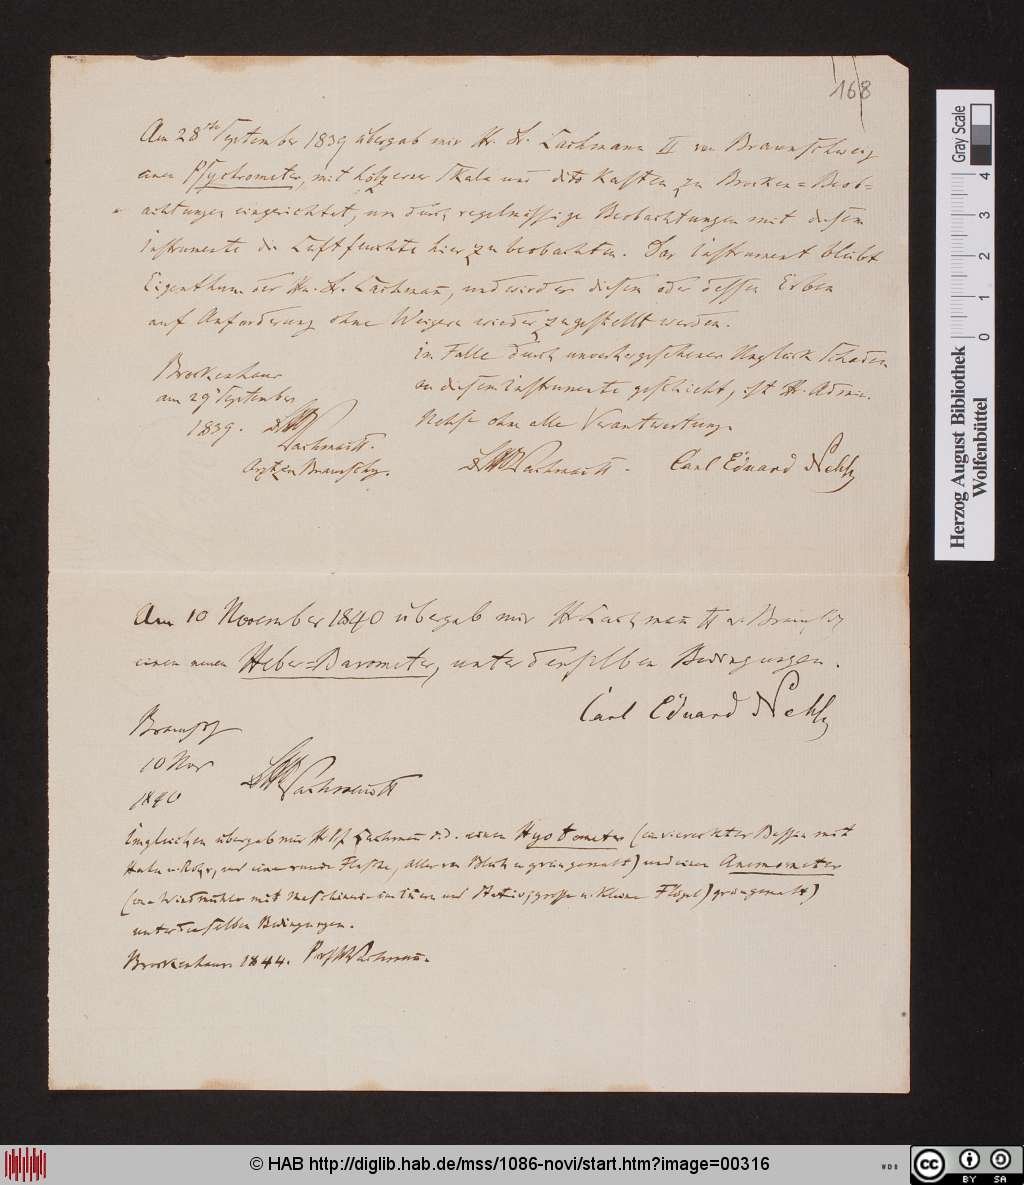 168
Am 28ten September 1839 übergab mir Hr. Dr. Lachmann II von Braunschweig
einen Psychrometer, mit hölzerner Skala und dito Kasten zu Brocken=Beob=
achtungen eingerichtet, um durch regelmässige Beobachtungen mit diesem
Instrumente die Luftfeuchte hier zu beobachten. Das Instrument bleibt
Eigenthum des Hn. Dr. Lachmann, und wird es diesem oder dessen Erben
auf Anforderung ohne Weigern wieder zugestellt werden.
Im Falle durch unvorhergesehenes Unglück Schaden
an diesem Instrumente geschieht, ist Hr. Admin.
Nehse ohne alle Verantwortung.
Brockenhaus
am 29 September
1839.
Lachmann
Arzt in Braunschg.
Lachmann
Carl Eduard Nehse
Am 10 November 1840 übergab mir H Lachmann II v. Braunschg
einen neuen Heber=Barometer, unter denselben Bedingungen.
Carl Eduard Nehse
Braunschg
10 Nov
1840
Lachmann
Imgleichen übergab mir Lachmann d. einen Hyetometer (ein viereckter Bassin mit
Hahn u. Rohr, und eine runde Flasche, alles von Blech u grün gemalt) und einen Anemometer
(eine Windmühle mit Maschinerie im innern und Stativ, grosse u. kleine Flügel) grün gemalt)
unter denselben Bedingungen.
Brockenhaus 1844. Lachmann.
Gray Scale
0 1 2 3 4
Herzog August Bibliothek
Wolfenbüttel
© HAB http://diglib.hab.de/mss/1086-novi/start.htm?image=00316
WDB
cc BY SA